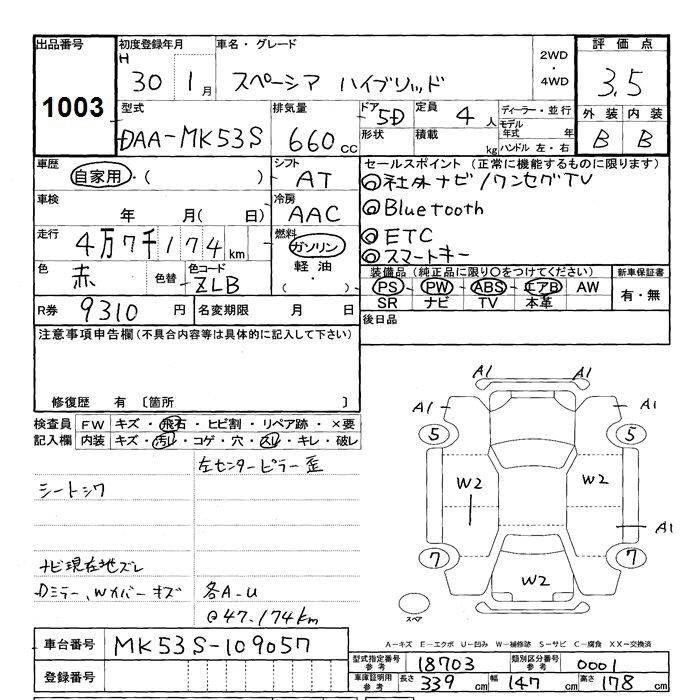 出品番号 初度登録年月 車名・グレード 2WD ・ 4WD 評価点
1003 H 30 1月 スペーシア ハイブリッド 3.5
型式 排気量 ドア 5D 定員 4人 ディーラー・並行 外装 内装
DAA-MK53S 660cc 形状 積載 kg モデル年式 年 ハンドル 左・右 B B
車歴 自家用・( ) シフト AT セールスポイント (正常に機能するものに限ります)
◎社外ナビ/ワンセグTV
車検 年 月( 日) 冷房 AAC ◎Bluetooth
走行 4万7千174km 燃料 ガソリン ◎ETC
軽油・( ) ◎スマートキー
色 赤 色替 色コード ZLB 装備品 (純正品に限り〇をつけてください) 新車保証書
PS PW ABS エアB AW 有・無
SR ナビ TV 本革
R券 9310円 名変期限 月 日 後日品
注意事項申告欄 (不具合内容等は具体的に記入して下さい)
修復歴 有 〔箇所 〕
検査員 FW キズ・飛石・ヒビ割・リペア跡・×要
記入欄 内装 キズ・汚レ・コゲ・穴・スレ・キレ・破レ
左センターピラー歪
シートシワ
ナビ現在地ズレ
Dミラー、Wカバーキズ 各A-U
@47.174km
A1 A1
A1 A1
5 5
W2 W2
A1
7 7
W2
スペア
A-キズ E-エクボ U-凹み W-補修跡 S-サビ C-腐食 XX-交換済
車台番号 MK53S-109057
型式指定番号 参考 18703 類別区分番号 参考 0001
登録番号 車庫証明用 参考 長さ 339cm 幅 147cm 高さ 178cm